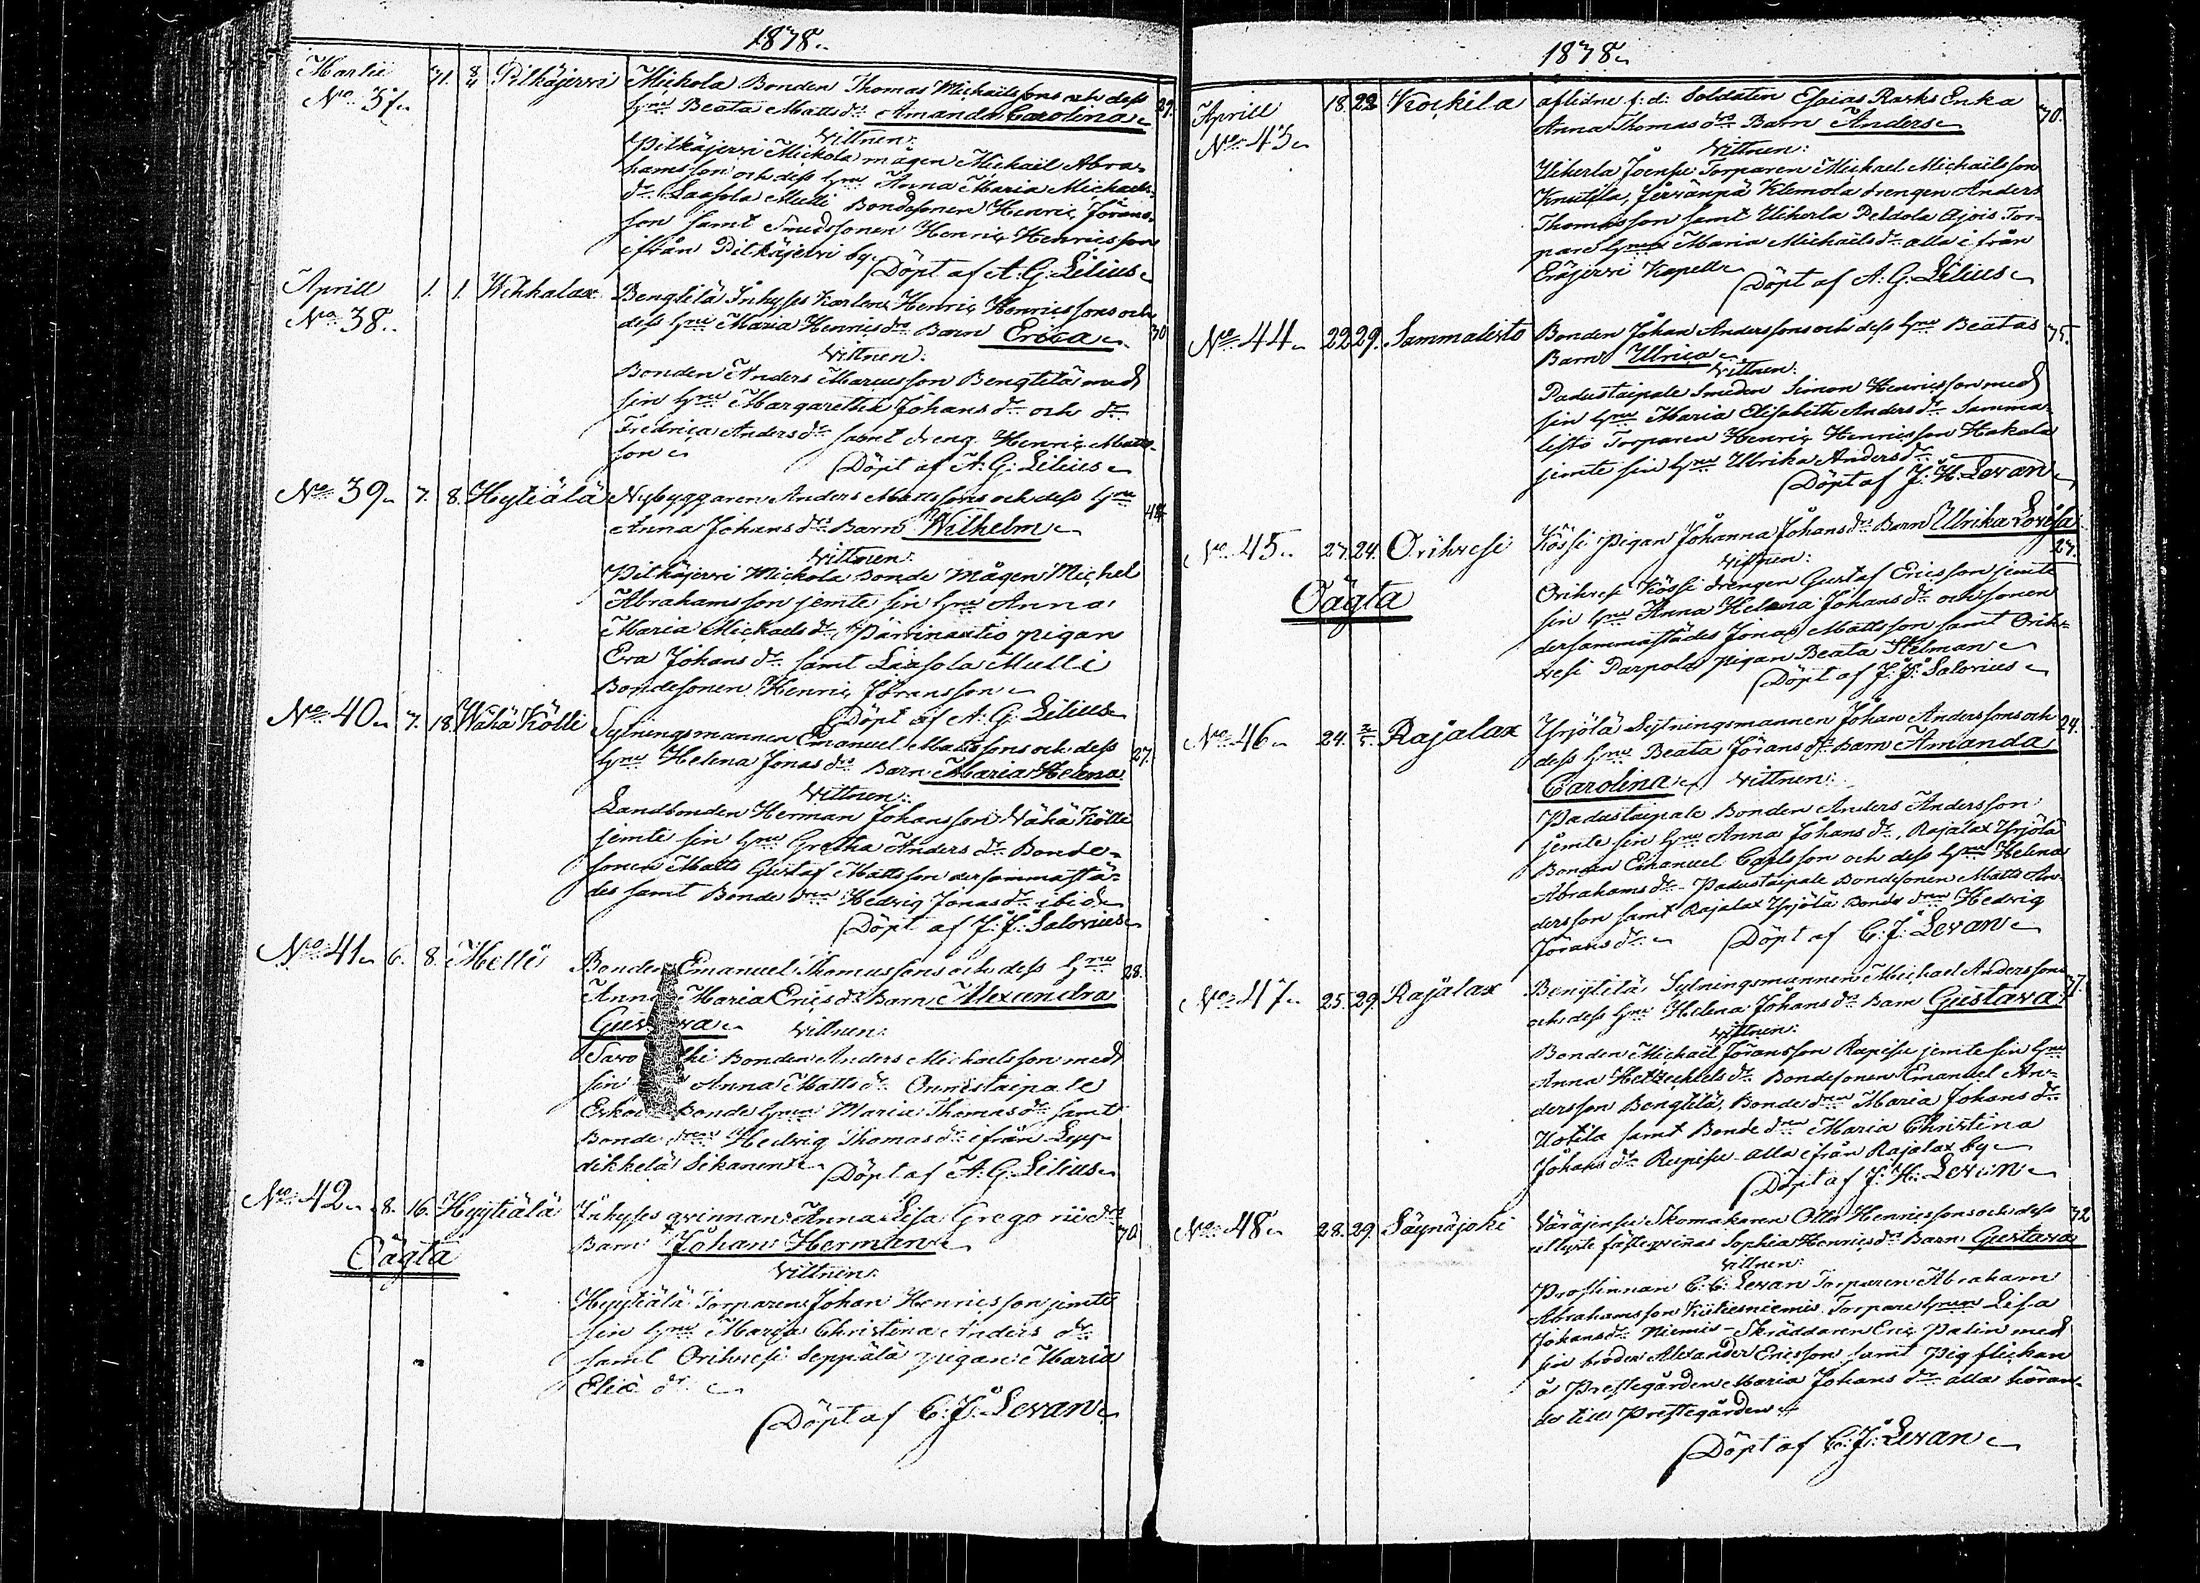 1878.
Martii 31. 8/4 Pilkäjerwi Mickola Bonden Thomas Michaelssons och dess
No 37. hru Beata Matts dr Amanda Carolina 29.
Vittnen:
Pilkäjerwi Mickola mågen Michaël Abra-
hamsson och dess hru Anna Maria Michaels
dr Laasola Mulli Bondesonen Henric Jörans-
son samt Smedssonen Henric Henricsson
ifrån Pilkäjerwi by.
Döpt af A. G. Lilius
Aprill 1. 1. Wihkalax Bengtilä Inhyses Karlen Henric Henricssons och
No 38. dess hru Maria Henrics drs Barn Erica 30
Vittnen:
Bonden Anders Marcusson Bengtilä med
sin hru Margaretha Johans dr och dr
Fredrica Anders dr samt dreng Henric Matts-
son
Döpt af A. G. Lilius
No 39 7. 8. Hytiälä Nybyggaren Anders Mattssons och dess hru
Anna Johans drs Barn Wilhelm
Vittnen:
Pilkäjerwi Mickola Bonde mågen Michel
Abrahamsson jemte sin hru Anna
Maria Michaels dr, Pärrinaxtio pigan
Eva Johans dr samt Laasola Mulli
Bondesonen Henric Jöransson
Döpt af A. G. Lilius
No 40 7. 18. Wähä Kölli Sytningsmannen Emanuel Mattssons och dess
hru Helena Jonas drs Barn Maria Helena 27.
Vittnen:
Landbonden Herman Johansson Wähä Kölli
jemte sin hru Gretha Anders dr Bonde-
sonen Matts Gustaf Mattsson dersammastä-
des samt Bonde drn Hedvig Jonas dr ibid.
Döpt af J. F. Salovius
No 41 6. 8. Melli Bonden Emanuel Thomassons och dess hru 28.
Anna Maria Erics drs Barn Alexandra
Gustava Vittnen:
Bonden Anders Michaelsson med
sin Anna Matts dr Onnistaipale
Bonde hrun Maria Thomas dr samt
Bonde drn Hedvig Thomas dr ifrån Lyy-
dikkelä Sikanen
Döpt af A. G. Lilius
No 42 8. 16. Hyytiälä Inhyses qvinnan Anna Lisa Gregorii drs
Oägta Barn Johan Herman 70
Vittnen:
Hyytiälä Torparen Johan Henricsson jemte
sin hru Maria Christina Anders dr
samt Orihvesi Seppälä pigan Maria
Elias dr
Döpt af C. J. Levan
1878
Aprill 18. 22 Kockila aflidne f. d. Soldaten Esaias Rasks Enka 30.
No 43 Anna Thomas drs Barn Anders
Vittnen:
Uiherla Joensu Torparen Michael Michailsson
Knutila, Järvänpä Klemola drengen Anders
Thomasson samt Uiherla Peldola Ajois Tor-
pare hrun Maria Michaels dr alla ifrån
Eräjerwi Kapell
Döpt af A. G. Lilius
No 44 22 29. Sammalisto Bonden Johan Anderssons och dess hru Beatas 35.
Barn Ulrica
Vittnen:
Padustaipale Smeden Simon Henricsson med
sin hru Maria Elisabeth Anders dr Samma-
listo Torparen Henric Henricsson Hakala
jemte sin hru Ulrika Anders dr
Döpt af J. H. Levan
No 45. 23. 24. Orihvesi Kössi pigan Johanna Johans drs Barn Ulrika Lovisa
Oägta Vittnen: 27.
Orihvesi Kössi drengen Gustaf Ericsson jemte
sin hru Anna Helena Johans dr och sonen
dersammastädes Jonas Mattsson samt Orih-
vesi Parpola pigan Beata Stelman
Döpt af J. F. Salovius
No 46 24. 2/5 Rajalax Yrjölä Sytningsmannen Johan Anderssons och 24.
dess hru Beata Jörans drs Barn Amanda
Carolina Vittnen:
Padustaipale Bonden Anders Andersson
jemte sin hru Anna Johans dr, Rajalax Yrjölä
Bonden Emanuel Carlsson och dess hru Helena
Abrahams dr Padustaipale Bondesonen Matts An-
dersson samt Rajalax Yrjölä Bonde drn Hedvig
Jörans dr
Döpt af C. J. Levan
No 47 25. 29. Rajalax Bengtilä Sytningsmannen Michael Anderssons
och dess hru Helena Johans drs Barn Gustava 37.
Vittnen:
Bonden Michaël Jöransson Rapisu jemte sin hru
Anna Hetzechiels dr Bondesonen Emanuel An-
dersson Bengtilä, Bonde drn Maria Johans dr
Kotila samt Bonde drn Maria Christina
Johans dr Repisu alla ifrån Rajalax by
Döpt af J. H. Levan
No 48 28. 29. Säynäjoki Väräjensu Skomakaren Otto Henricssons och dess 32
utlyste fästeqvinnas Sophia Henrics drs Barn Gustava
Vittnen:
Prostinnan C. C. Levan Torparen Abraham
Abrahamsson Kutiesniemis Torpare hrun Lisa
Johans dr Niemis Skräddaren Eric Palin med
sin broder Alexander Ericsson samt Pig flickan
å Prestegården Maria Johans dr alla höran-
de till Prestegården
Döpt af C. J. Levan